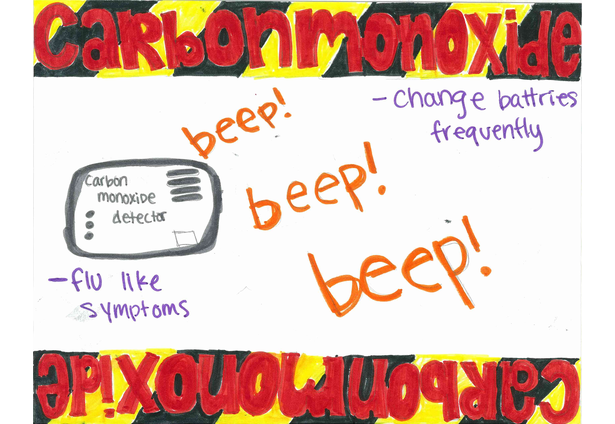 carbonmonoxide
- Change battries
frequently
beep!
beep!
beep!
carbon
monoxide
detector
- flu like
symptoms
carbonmonoxide